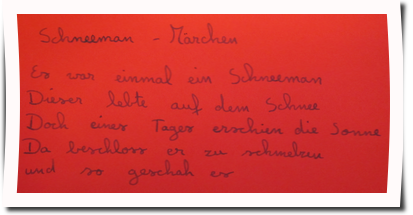 Schneeman - Märchen
Es war einmal ein Schneeman
Dieser lebte auf dem Schnee
Doch eines Tages erschien die Sonne
Da beschloss er zu schmelzen
und so geschah es